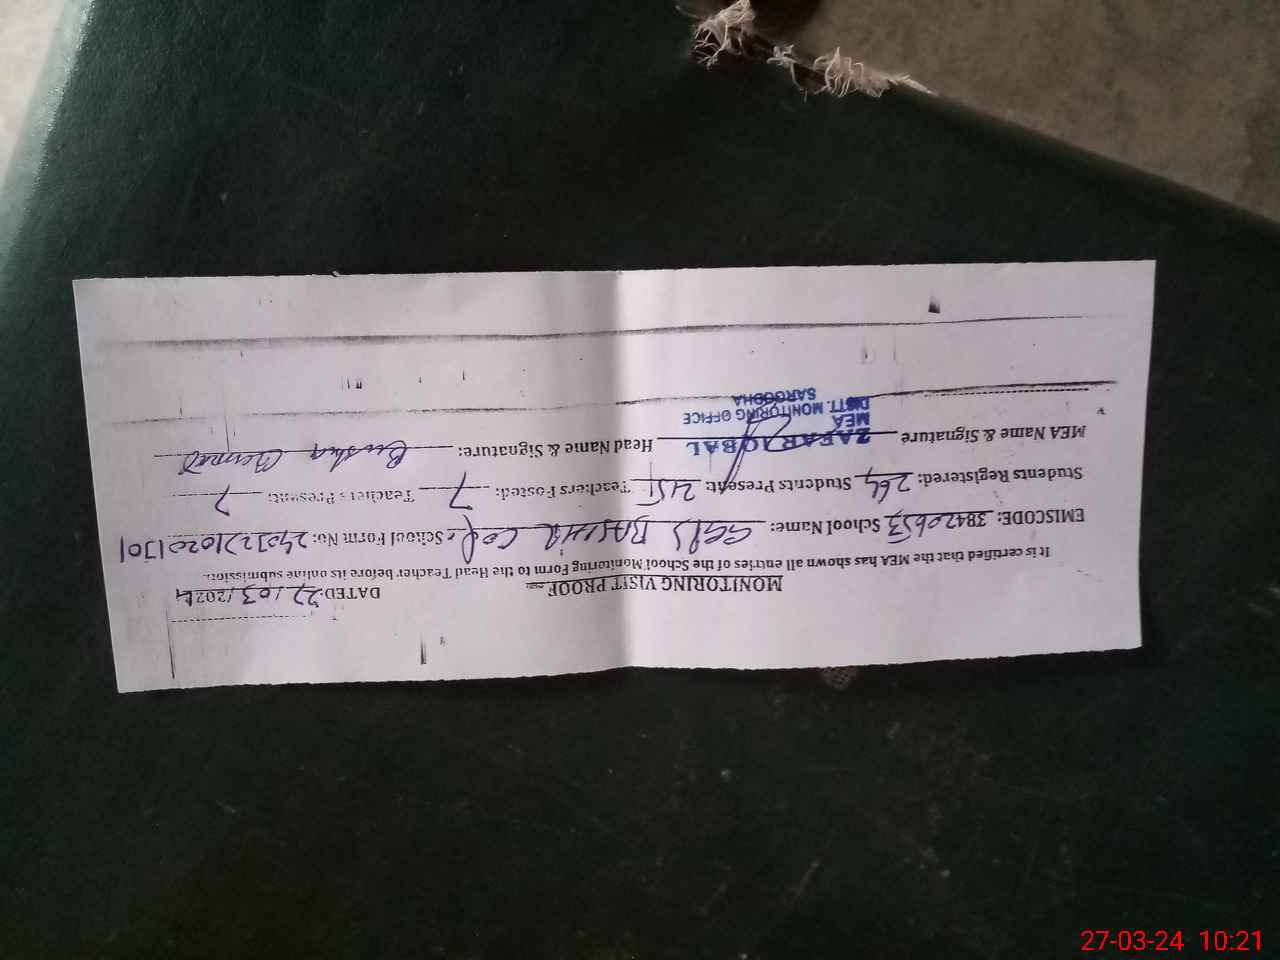 MONITORING VISIT PROOF
DATED: 27/03/2024
It is certified that the MEA has shown all entries of the School Monitoring Form to the Head Teacher before its online submission.
EMISCODE: 38420653 School Name: GGPS School Form No:
Students Registered: 264 Students Present: 215 Teachers Posted: 7 Teachers Present: 7
MEA Name & Signature ZAFAR IQBAL Head Name & Signature: Bushra
MEA
DISTT. MONITORING OFFICE
SARGODHA
27-03-24 10:21